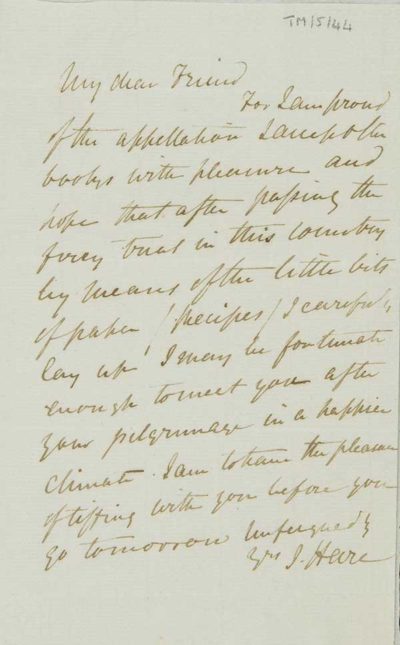 TM/5/44
My dear Friend
For I am proud
of the appellation I accept the
books with pleasure and
hope that after passing the
firey trial in this country
by means of the little bits
of paper / Recipes / I carefully
lay up I may be fortunate
enough to meet you after
your pilgrimage in a happier
climate. I am to have the pleasure
of tiffing with you before you
go tomorrow unfeignedly
yrs J. Hare